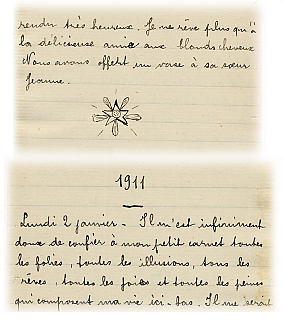 rendu très heureux. Je ne rêve plus qu'à
la délicieuse amie aux blonds cheveux
Nous avons offert un vase à sa sœur
Jeanne.
1911
Lundi 2 janvier - Il m'est infiniment
doux de confier à mon petit carnet toutes
les folies, toutes les illusions, tous les
rêves, toutes les joies et toutes les peines
qui composent ma vie ici-bas. Il me serait